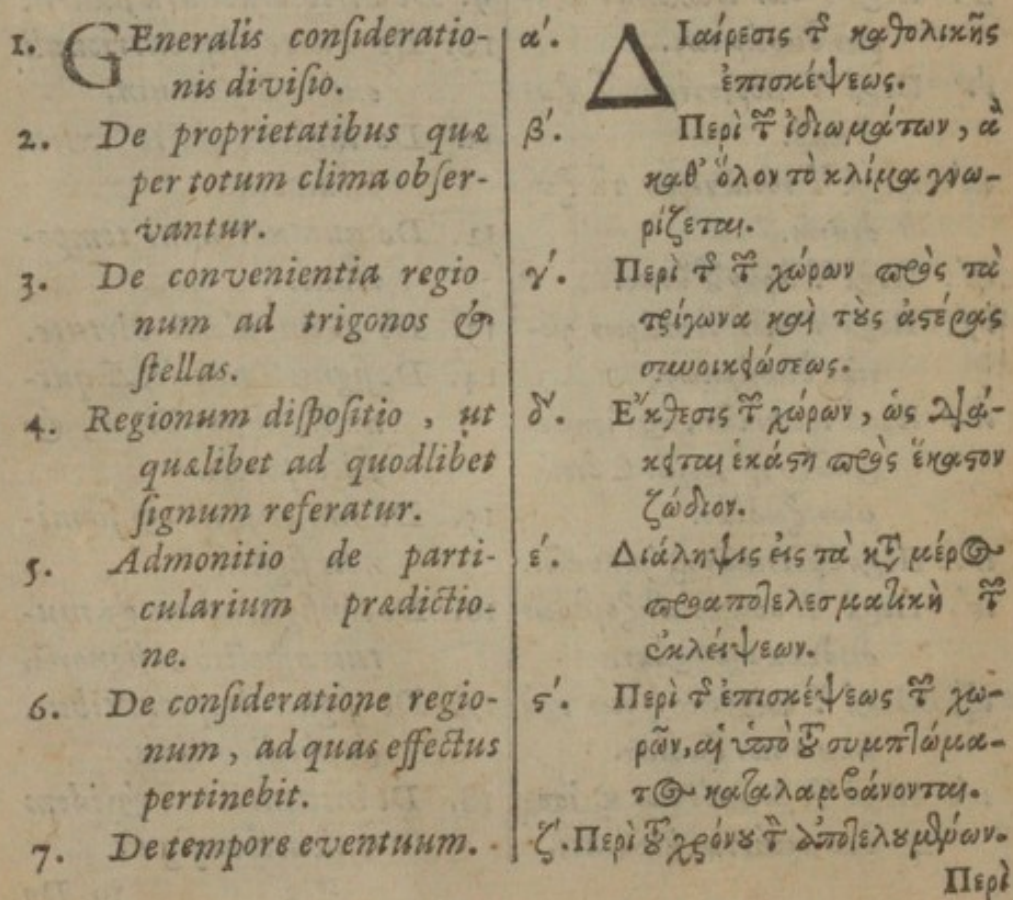 1. GEneralis conſideratio-
nis diviſio.
2. De proprietatibus quæ
per totum clima obſer-
vantur.
3. De convenientia regio
num ad trigonos &
ſtellas.
4. Regionum diſpoſitio, ut
quælibet ad quodlibet
ſignum referatur.
5. Admonitio de parti-
cularium prædictio-
ne.
6. De conſideratione regio-
num, ad quas effectus
pertinebit.
7. De tempore eventuum.
α΄. ΔΙαίρεσις τῆς καθολικῆς
ἐπισκέψεως.
β΄. Περὶ τῶν ἰδιωμάτων, ἃ
καθ᾽ ὅλον τὸ κλίμα γνω-
ρίζεται.
γ΄. Περὶ τῆς τῶν χώρων πρὸς τὰ
τρίγωνα καὶ τὰς ἀϛέρας
συνοικειώσεως.
δ΄. Εʹκθεσις τῶν χώρων, ὡς διά-
κειται ἑκάϛη πρὸς ἕκαϛον
ζώδιον.
ε΄. Διάληψις εἰς τὰ κτ μέρος
προαποτελεσματικὴ τῶν
ἐκλείψεων.
ϛ΄. Περὶ τῆς ἐπισκέψεως τῶν χω-
ρῶν, αἳ ὑπὸ τοῦ συμπτώμα-
τος καταλαμβάνονται.
ζ΄. Περὶ τοῦ χρόνου τῶν ἀποτελουμένων.
Περὶ